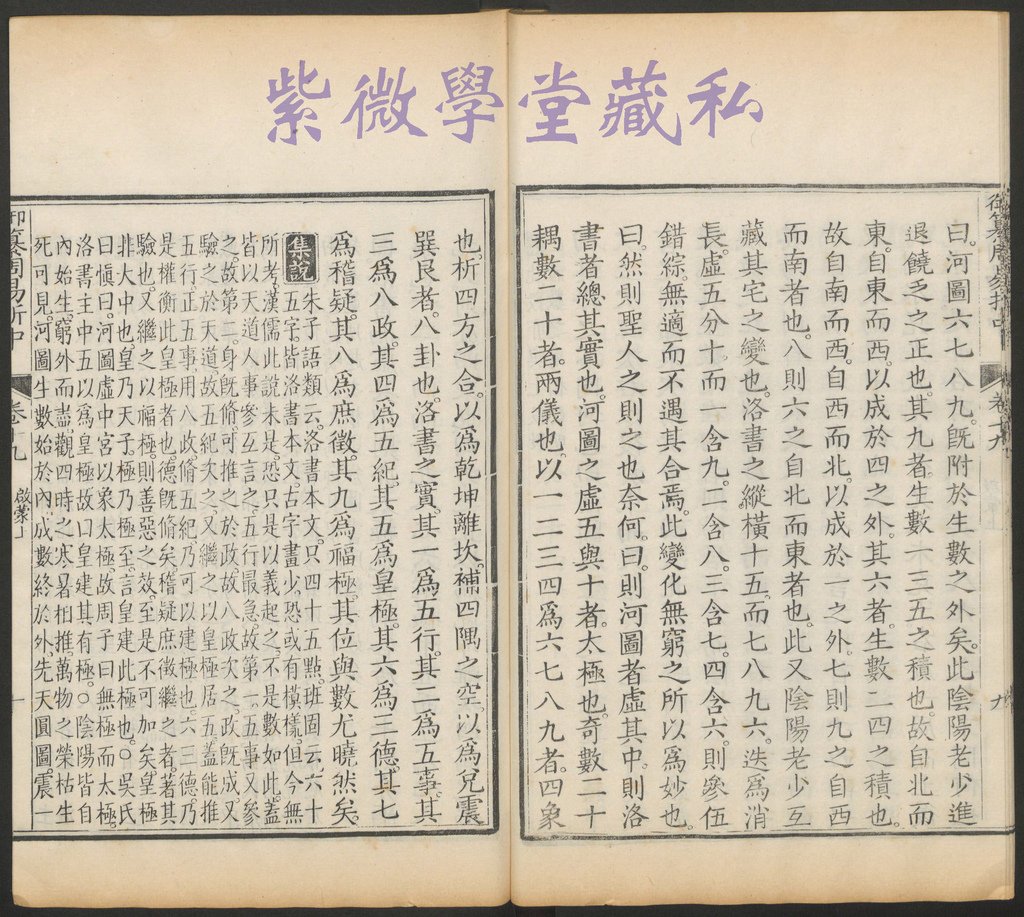 紫微學堂藏私
曰河圖六七八九。旣附於生數之外矣。此陰陽老少進
退饒乏之正也。其九者。生數一三五之積也。故自北而
東。自東而西。以成於四之外。其六者。生數二四之積也。
故自南而西。自西而北。以成於一之外。七則九之自西
而南者也。八則六之自北而東者也。此又陰陽老少互
藏其宅之變也。洛書之縱橫十五。而七八九六。迭爲消
長。虛五分十。而一含九。二含八。三含七。四含六。則參伍
錯綜。無適而不遇其合焉。此變化無窮之所以爲妙也。
曰。然則聖人之則之也奈何。曰。則河圖者虛其中。則洛
書者總其實也。河圖之虛五與十者。太極也。奇數二十
耦數二十者。兩儀也。以一二三四爲六七八九者。四象
也。析四方之合。以爲乾坤離坎。補四隅之空。以爲兌震
巽艮者。八卦也。洛書之實。其一爲五行。其二爲五事。其
三爲八政。其四爲五紀。其五爲皇極。其六爲三德。其七
爲稽疑。其八爲庶徵。其九爲福極。其位與數尤曉然矣。
集說 朱子語類云。洛書本文。只四十五點。班固云六十
五字。皆洛書本文。古字畫少。恐或有模樣。但今無
所考。漢儒此說未是。恐只是以義起之。不是數如此。蓋
皆以天道人事參互言之。五行最急。故第一。五事又參
之。故第二。身旣脩。可推之於政。故八政次之。政旣成。又
驗之於天道。故五紀次之。又繼之以皇極居五。蓋能推
五行。正五事。用八政。脩五紀。乃可以建極也。六三德。乃
是權衡此皇極者也。德旣脩矣。稽疑庶徵繼之者。著其
驗也。又繼之以福極。則善惡之效。至是不可加矣。皇極
非大中也。皇乃天子。極乃極至。言皇建此極也。○吳氏
曰愼曰。河圖虛中宮以象太極。故周子曰無極而太極。
洛書主中五以爲皇極。故曰皇建其有極。○陰陽皆自
內始生。窮外而盡。觀四時之寒暑相推。萬物之榮枯生
死可見。河圖生數始於內。成數終於外。先天圓圖。震一
卷十九 啟蒙上